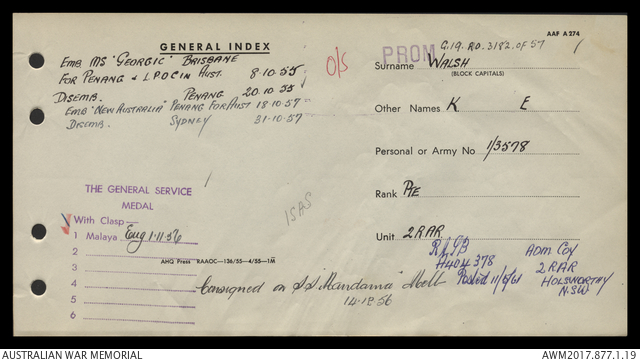 AAF A274
GENERAL INDEX
G.19. RO. 3182 OF 57
PROM
EMB MS "GEORGIC" BRISBANE
FOR PENANG & L.P.O.C in AUST. 8.10.55
O/S
Surname WALSH
(BLOCK CAPITALS)
DISEMB. PENANG 20.10.55
EMB "NEW AUSTRALIA" PENANG FOR AUST 18.10.57
DISEMB. SYDNEY 31.10.57
Other Names K E
Personal or Army No 1/3578
Rank PTE
Unit 2RAR
THE GENERAL SERVICE
MEDAL
With Clasp—
1 Malaya Eng 1.11.56
2
3
4
5
6
ISAS
AHQ Press RAAOC—136/55—4/55—1M
RASB
H404378
Posted 11/5/61
ADM COY
2 RAR
HOLSWORTHY
N.S.W
Consigned on S.S. "Kandama" Melb
14.12.56
AUSTRALIAN WAR MEMORIAL
AWM2017.877.1.19